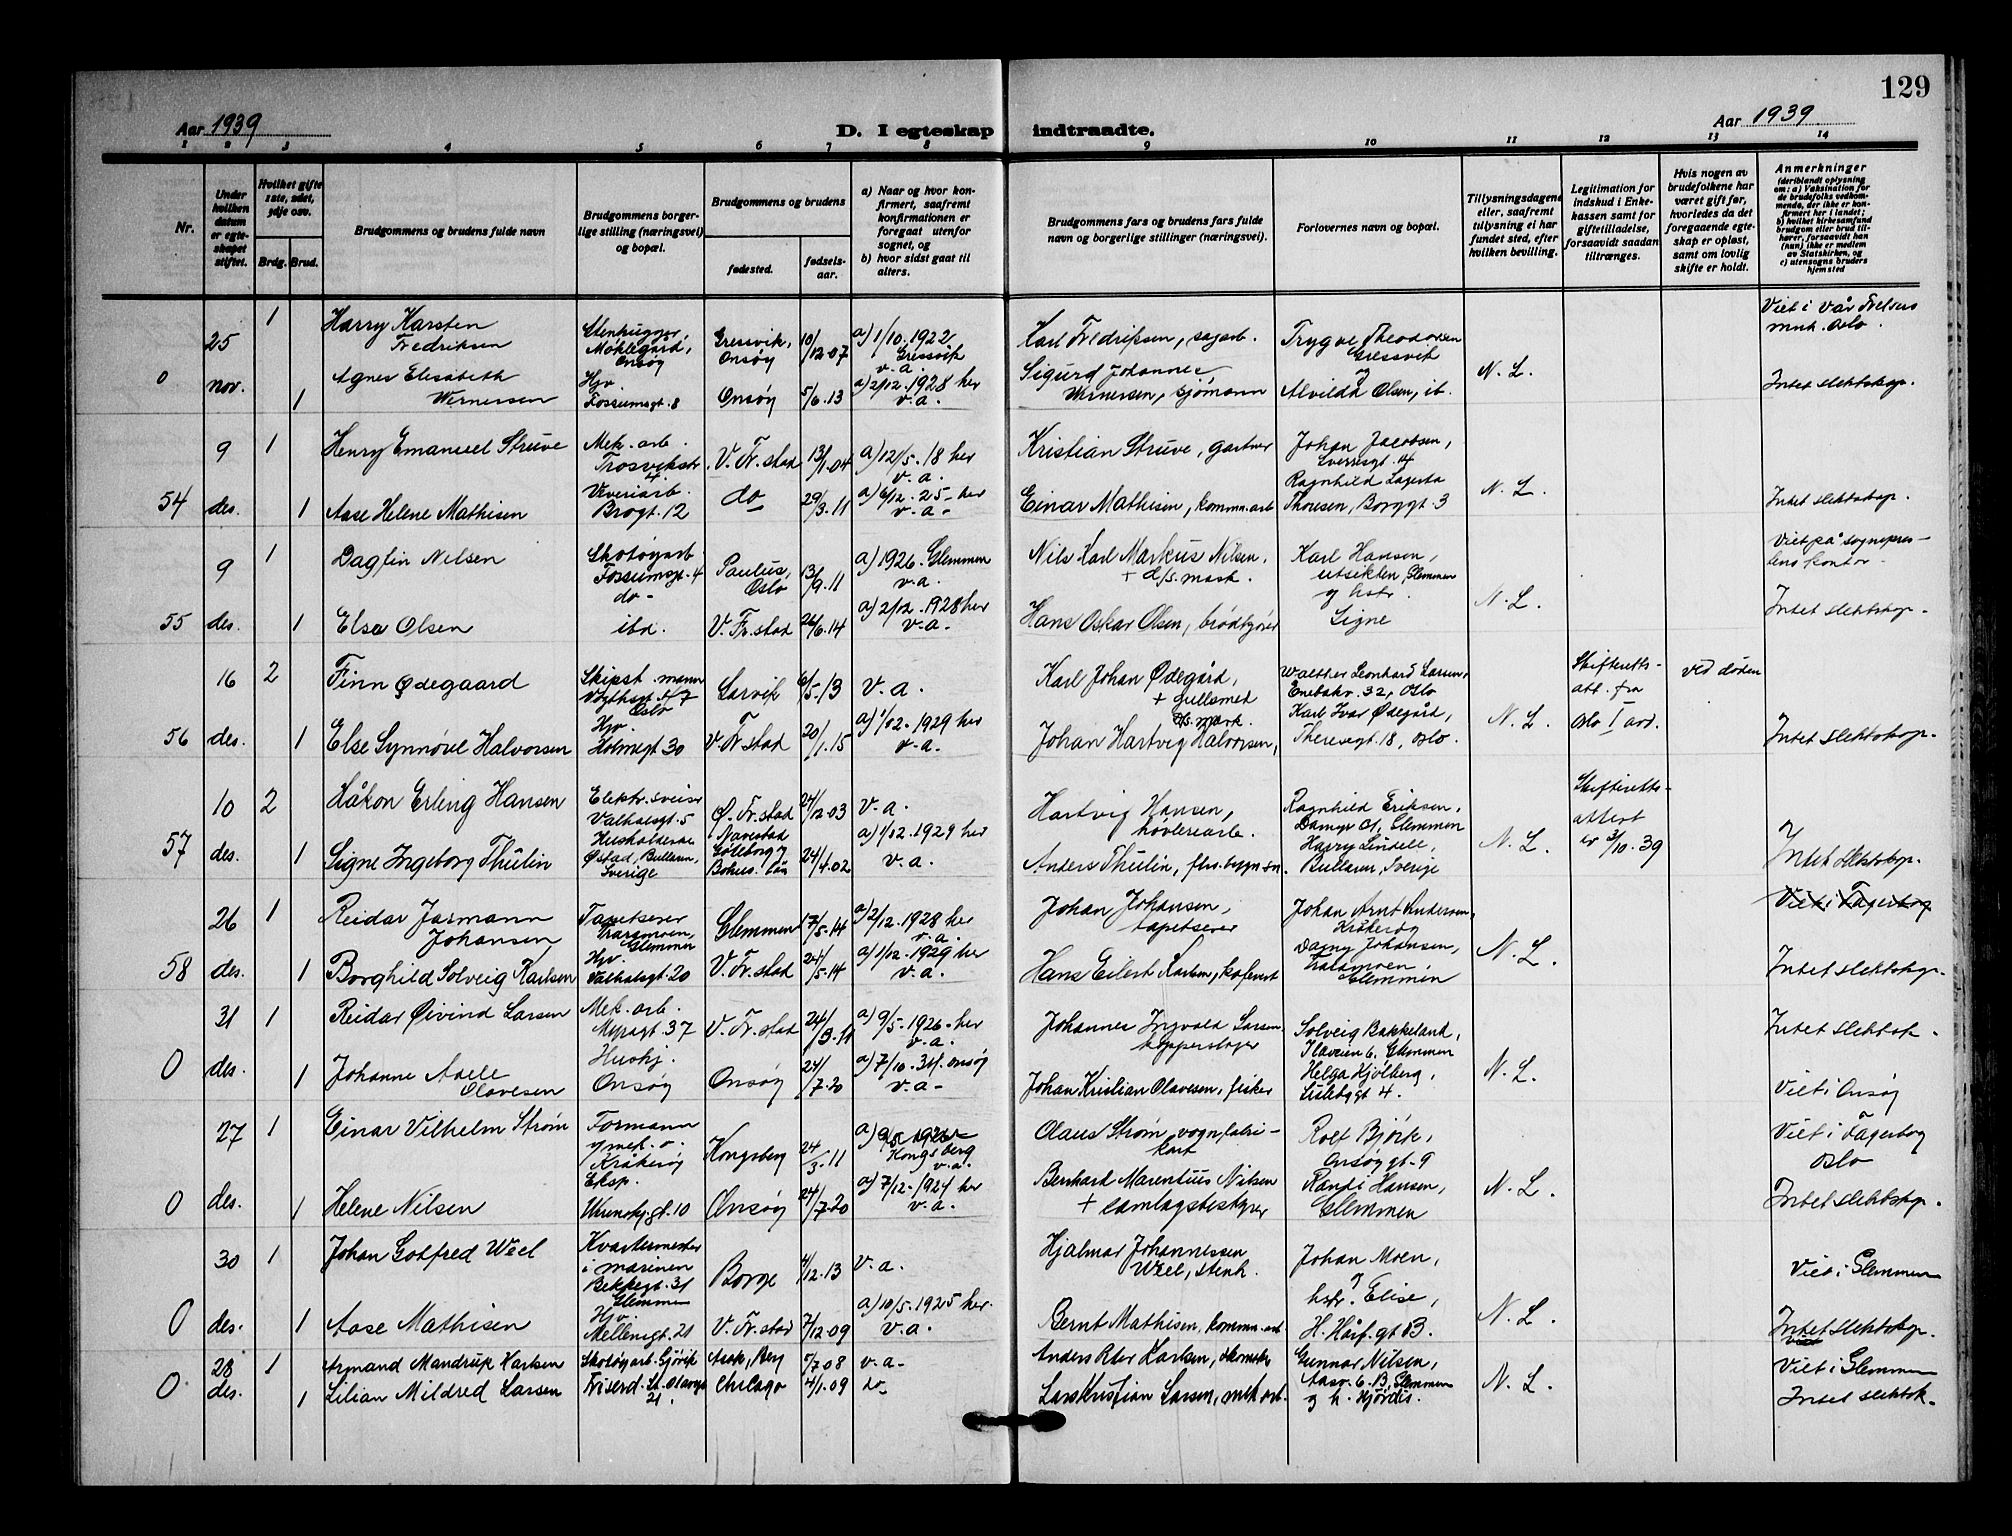 129
Aar 1939
D. I egteskap indtraadte.
Aar 1939
1 2 3 4 5 6 7 8 9 10 11 12 13 14
Nr.
Under hvilken datum er egteskapet stiftet.
Hvilket gifte 1ste, 2det, 3dje osv.
Brdg. Brud.
Brudgommens og brudens fulde navn
Brudgommens borgerlige stilling (næringsvei) og bopæl.
Brudgommens og brudens
fødested.
fødselsaar.
a) Naar og hvor konfirmert, saafremt konfirmationen er foregaat utenfor sognet, og
b) hvor sidst gaat til alters.
Brudgommens fars og brudens fars fulde navn og borgerlige stillinger (næringsvei).
Forlovernes navn og bopæl.
Tillysningsdagene eller, saafremt tillysning ei har fundet sted, efter hvilken bevilling.
Legitimation for indskud i Enkekassen samt for giftetilladelse, forsaavidt saadan tiltrænges.
Hvis nogen av brudefolkene har været gift før, hvorledes da det foregaaende egteskap er opløst, samt om lovlig skifte er holdt.
Anmerkninger
(deriblandt oplysning om: a) Vaksination for de brudefolks vedkommende, der ikke er konfirmert her i landet; b) hvilket kirkesamfund brudgom eller brud tilhører, forsaavidt han (hun) ikke er medlem av Statskirken, og c) utensogns bruders hjemsted
0 25 nov.
1 Harry Karsten Fredriksen
Stenhugger, Møklegård, Onsøy
Gressvik, Onsøy
10/12.07
a) 1/10.1922 Gressvik v.a.
Karl Fredriksen, sagarb.
Trygve Theodorsen Gressvik
Viet i Vår Frelsers menk. Oslo.
1 Agnes Elisabeth Wernersen
Hjv. Fossumsgt. 8
Onsøy
5/6.13
a) 2/12.1928 her v.a.
Sigurd Johannes Wernersen, sjømann
og Alvilda Olsen, ib.
N. L.
Intet slektskap.
54 9 des.
1 Henry Emanuel Struve
Mek. arb. Trosvikstr. 4.
V. Fr.stad
13/1.04
a) 12/5.18 her v.a.
Kristian Struve, gartner
Johan Jacobsen, Sverresgt. 14
1 Aase Helene Mathisen
Veveriarb. Brogt. 12
do
29/3.11
a) 6/12.25 - her v.a.
Einar Mathisen, kommn. arb
Ragnhild Lagerta Thoresen, Borggt. 3
N. L.
Intet slektskap.
55 9 des.
1 Dagfin Nilsen
Skotøyarb. Fossumsgt. 4 do -
Paulus, Oslo
13/9.11
a) 1926. Glemmen v.a.
Nils Karl Markus Nilsen, + d/s. mask.
Karl Hansen, utsikten, Glemmen og hstr. Signe
Viet på sogneprestens kontor.
1 Elsa Olsen
ibd.
V. Fr.stad
26/6.14
a) 2/12.1928 her v.a.
Hans Oskar Olsen, brødkjører
N. L.
Intet slektskap.
56 16 des.
2 Finn Ødegaard
Skipst. mann Vogtsgt. 47 Oslo
Larvik
6/5.13
v.a.
Karl Johan Ødegård, + gullsmed
Walther Leonhard Larsen, Enebakv. 32, Oslo
Skifterettsatt. fra Oslo I avd.
ved døden
1 Else Synnøve Halvorsen
Hjv. Holmegt 30
V. Fr.stad
20/1.15
a) 1/12.1929 her v.a.
Johan Hartvig Halvorsen, d/s. mask.
Karl Ivar Ødegård, Theresegt. 18, Oslo.
N. L.
Intet slektskap.
57 10 des.
2 Håkon Erling Hansen
Elektr. sveiser Valhalsgt. 5
Ø. Fr.stad
24/12.03
v.a.
Hartvig Hansen, høvleriarb.
Ragnhild Eriksen, Damyr 01, Glemmen
Skifteretts-attest av 3/10.39
1 Signe Ingeborg Thulin
Husholderske Østad, Bullaren, Sverige
Navestad Göteborg og Bohus. Län
24/4.02
a) 1/12.1929 her v.a.
Anders Thulin,
Harry Lindell, Bullaren, Sverige
N. L.
Intet slektskap.
58 26 des.
1 Reidar Jarmann Johansen
Tapetserer Traramoen, Glemmen
Glemmen
17/5.14
a) 2/12.1928 her v.a.
Johan Johansen, tapetserer
Johan Arnt Andersen, Kråkerøy
Viet i Fagerborg
1 Borghild Solveig Karlsen
Hjv. Valhalsgt. 20
V. Fr.stad
24/5.14
a) 1/12.1929 her v.a.
Hans Eilert Karlsen,
Dagny Johansen, Traramoen, Glemmen
N. L.
Intet slektskap.
0 31 des.
1 Reidar Øivind Larsen
Mek. arb. Myragt. 37
V. Fr.stad
24/3.11
a) 9/5.1926 - her v.a.
Johannes Ingvald Larsen kopperslager
Solveig Bakkeland, Ilaveien 6. Glemmen
Intet slektsk.
1 Johanne Aalle Olavesen
Hushj. Onsøy
Onsøy
24/7.20
a) 7/10.34. Onsøy v.a.
Johan Kristian Olavesen, fisker
Helga Hjølberg, Lislebygt 4.
N. L.
Viet i Onsøy
0 27 des.
1 Einar Vilhelm Strøm
Formann Kråkerøy
Kongsberg
24/3.11
a) 1926 Kongsberg v.a.
Olaus Strøm, vognfabrikant
Rolf Björk, Onsøygt. 9
Viet i Fagerborg Oslo
1 Helene Nilsen
Eksp. Wrenskj. gt. 10
Onsøy
24/7.20
a) 7/12.1924 her v.a.
Bernhard Marentius Nilsen + samlagsbestyrer
Randi Hansen, Glemmen
N. L.
Intet slektskap.
0 30 des.
1 Johan Gotfred Weel
Kvartermester i marinen Bekkegt. 31 Glemmen
Borge
4/12.13
v.a.
Hjalmar Johannessen Weel, stenh.
Johan Moen, og hstr. Elise, H. Hårf. gt B.
Viet i Glemmen
1 Aase Mathisen
Hjv. Mellemgt. 21
V. Fr.stad
7/12.09
a) 10/5.1925 her. v.a.
Bernt Mathisen, kommn. arb
N. L.
Intet slektskap.
0 28 des.
1 Armand Mandrup Karlsen
Skotøyarb. Gjörik
Ask, Berg
5/7.08
v.a.
Anders Peter Karlsen,
Gunnar Nilsen, Aasv. 6. B, Glemmen og h. Hjørdis.
Viet i Glemmen
1 Lilian Mildred Larsen
Friserd. St. Olavsgt 21.
Chicago
4/1.09
do
Lars Kristian Larsen, mek. arb.
N. L.
Intet slektsk.